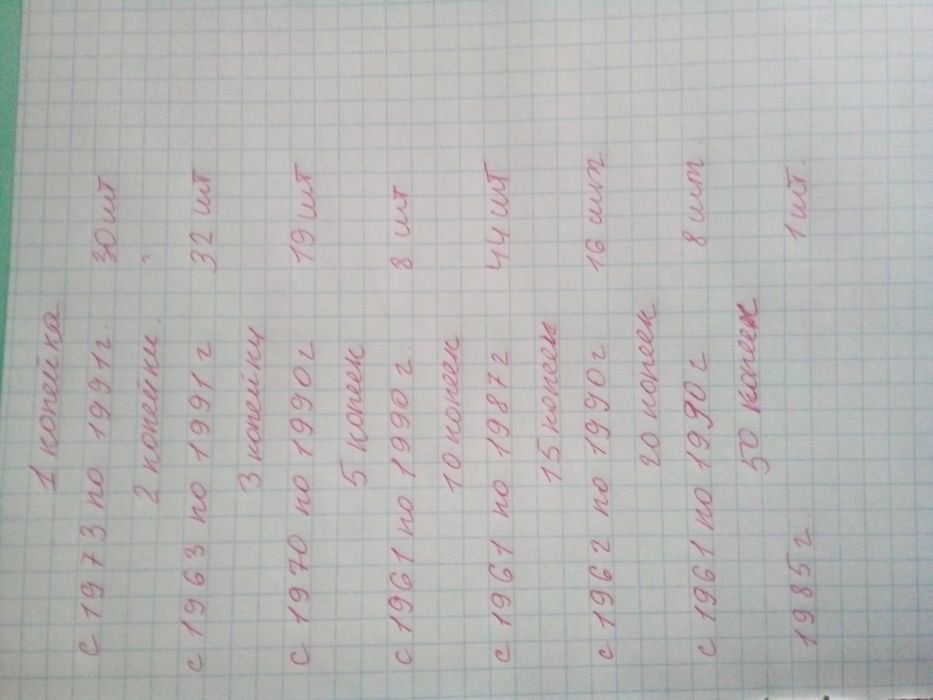 1 копейка
с 1973 по 1991г. 30 шт
2 копейки.
с 1963 по 1991 г 32 шт
3 копейки
с 1970 по 1990 г 19 шт
5 копеек
с 1961 по 1990 г. 8 шт
10 копеек
с 1961 по 1987 г 44 шт
15 копеек
с 1962 по 1990 г 16 шт
20 копеек
с 1961 по 1990 г 8 шт.
50 копеек
1985 г. 1 шт.